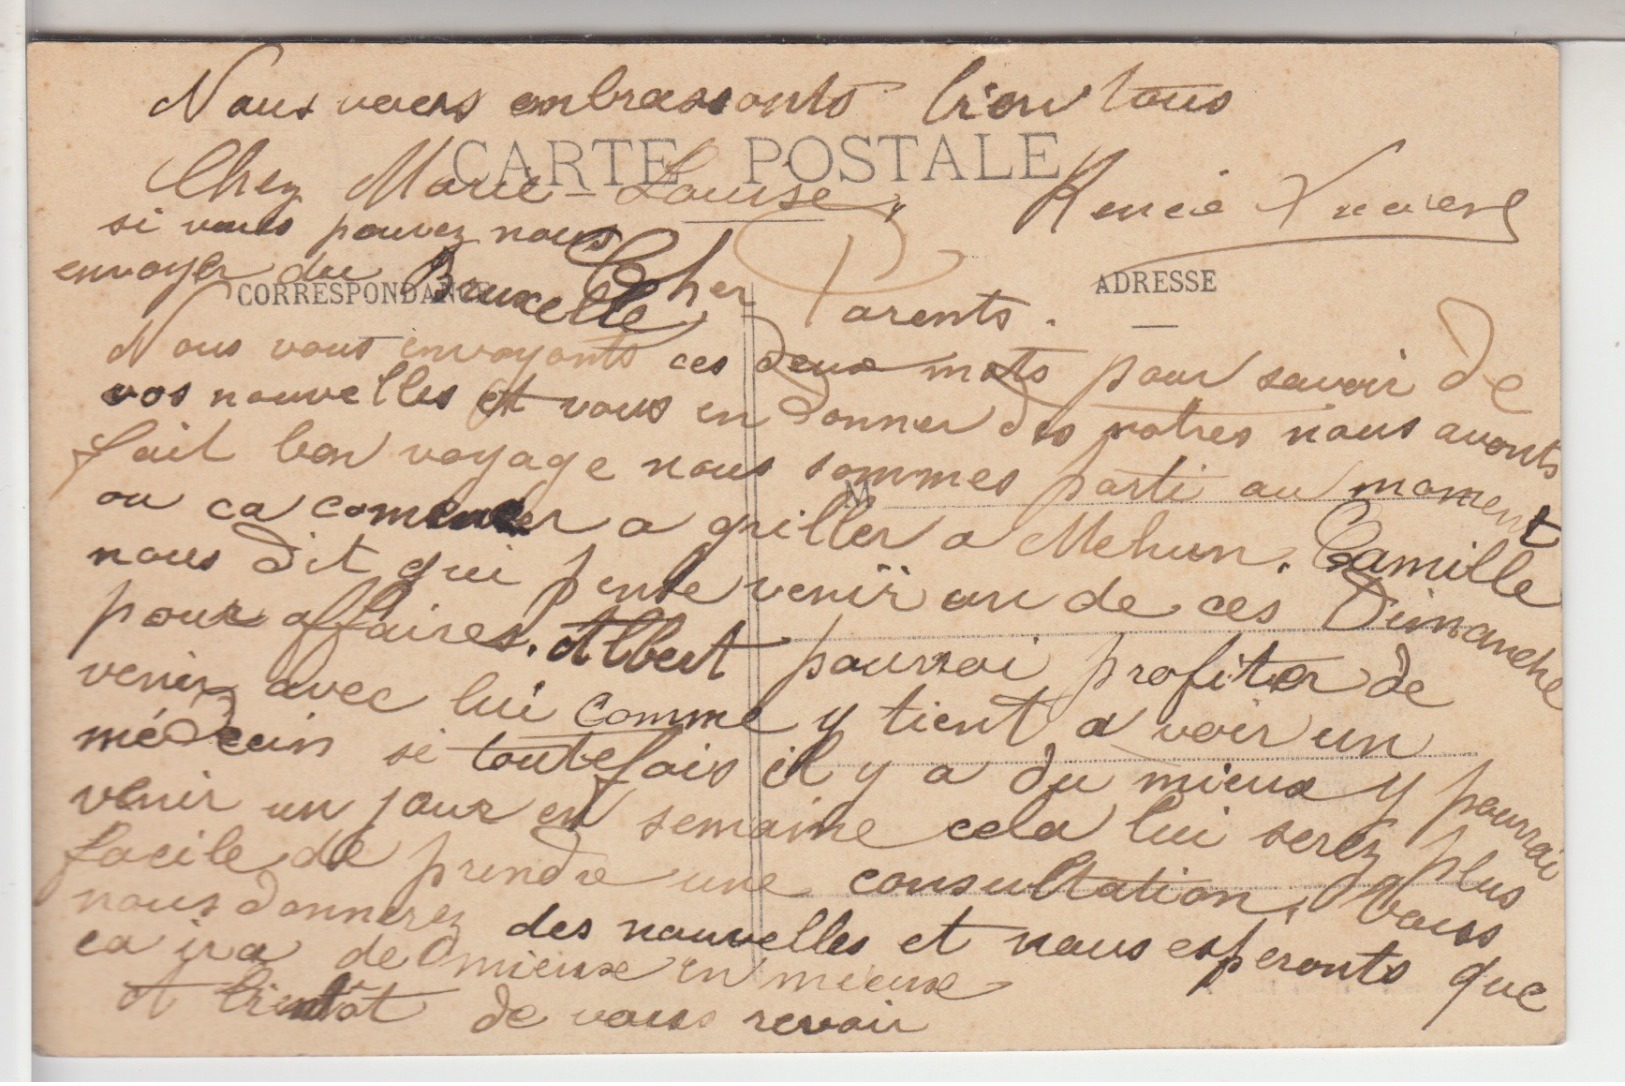 Nous vous embrassonts bien tous
CARTE POSTALE
Chez Marie-Louise, Renée
si vous pouvez nous
envoyer du
CORRESPONDANCE
ADRESSE
Cher Parents.
Nous vous envoyonts ces deux mots pour savoir de
vos nouvelles et vous en donner des notres nous avonts
fait bon voyage nous sommes parti au moment
M
ou ca comencer a griller a Mehun. Camille
nous dit qui pense venir un de ces Dimanche
pour affaires. Albert pourrai profiter de
venir avec lui comme y tient a voir un
médecin si toutefois il y a du mieux y pourrai
venir un jour en semaine cela lui serez plus
facile de prendre une consultation. Vous
nous donnerez des nouvelles et nous esperonts que
ca ira de mieux en mieux
A bientôt de vous revoir